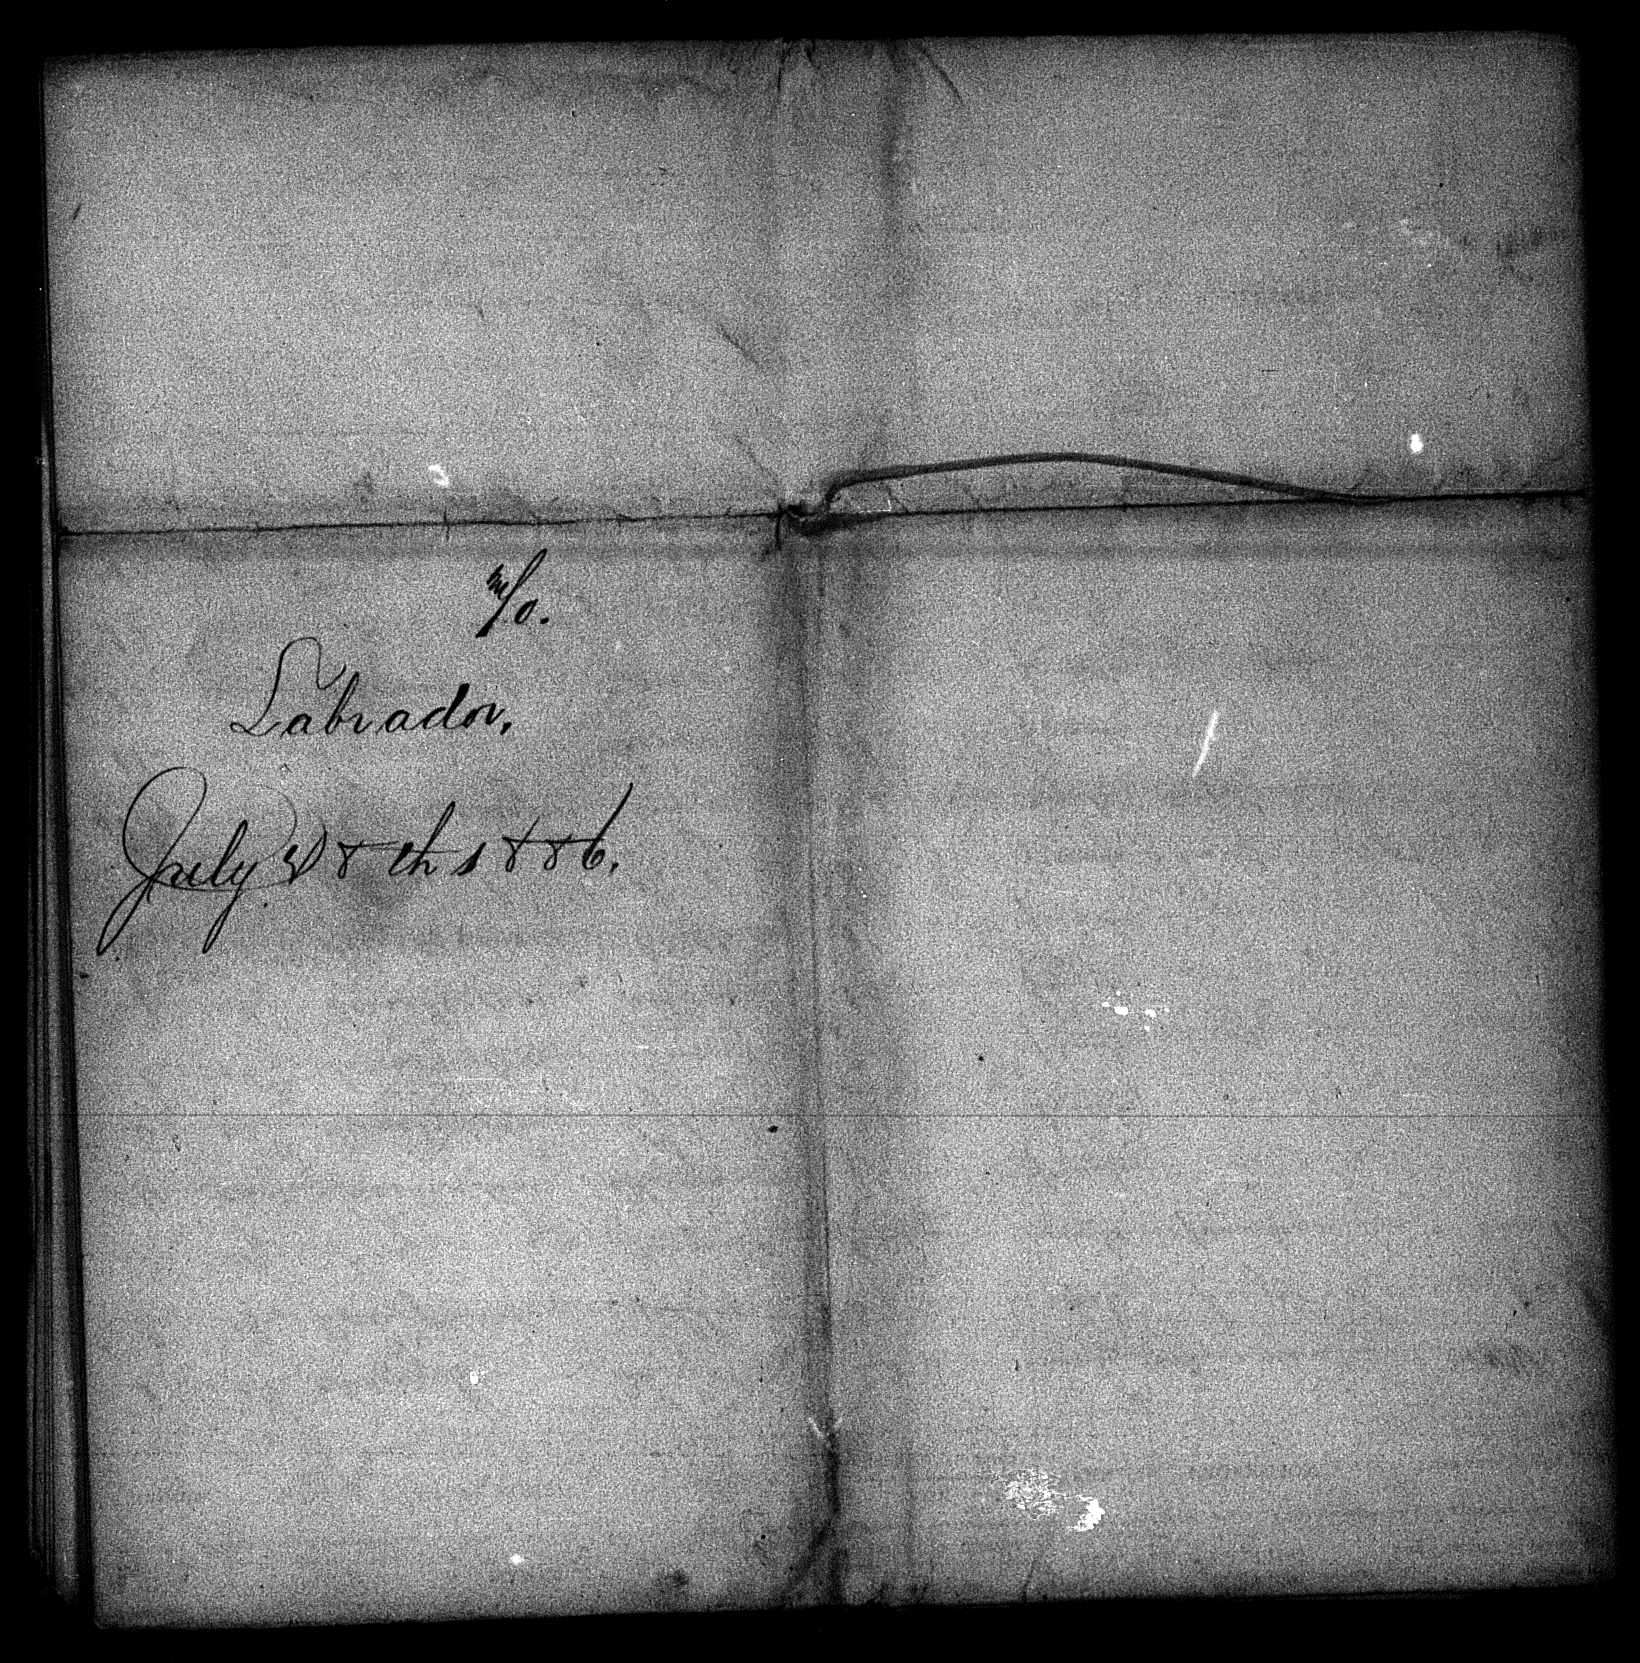 M/o.
Labrador,
July 28th 1886.